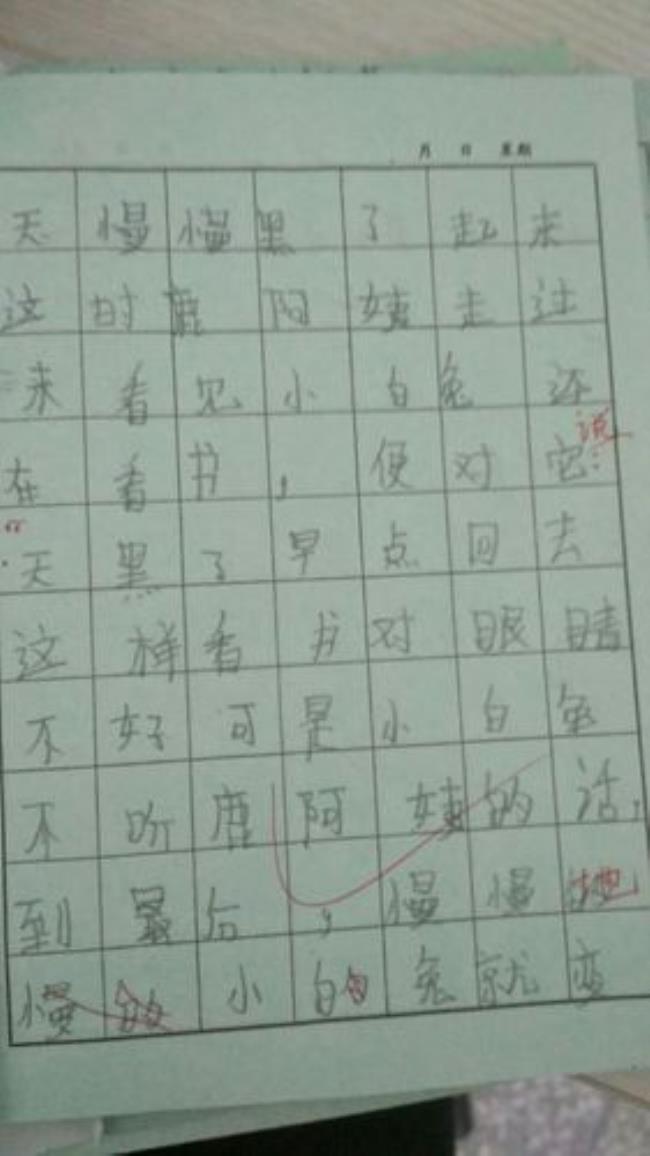 月 日 星期
天慢慢黑了起来
这时鹿阿姨走过
来看见小白兔还
在看书，便对它说：
“天黑了早点回去
这样看书对眼睛
不好可是小白兔
不听鹿阿姨的话，
到最后，慢慢地
慢的小白兔就变